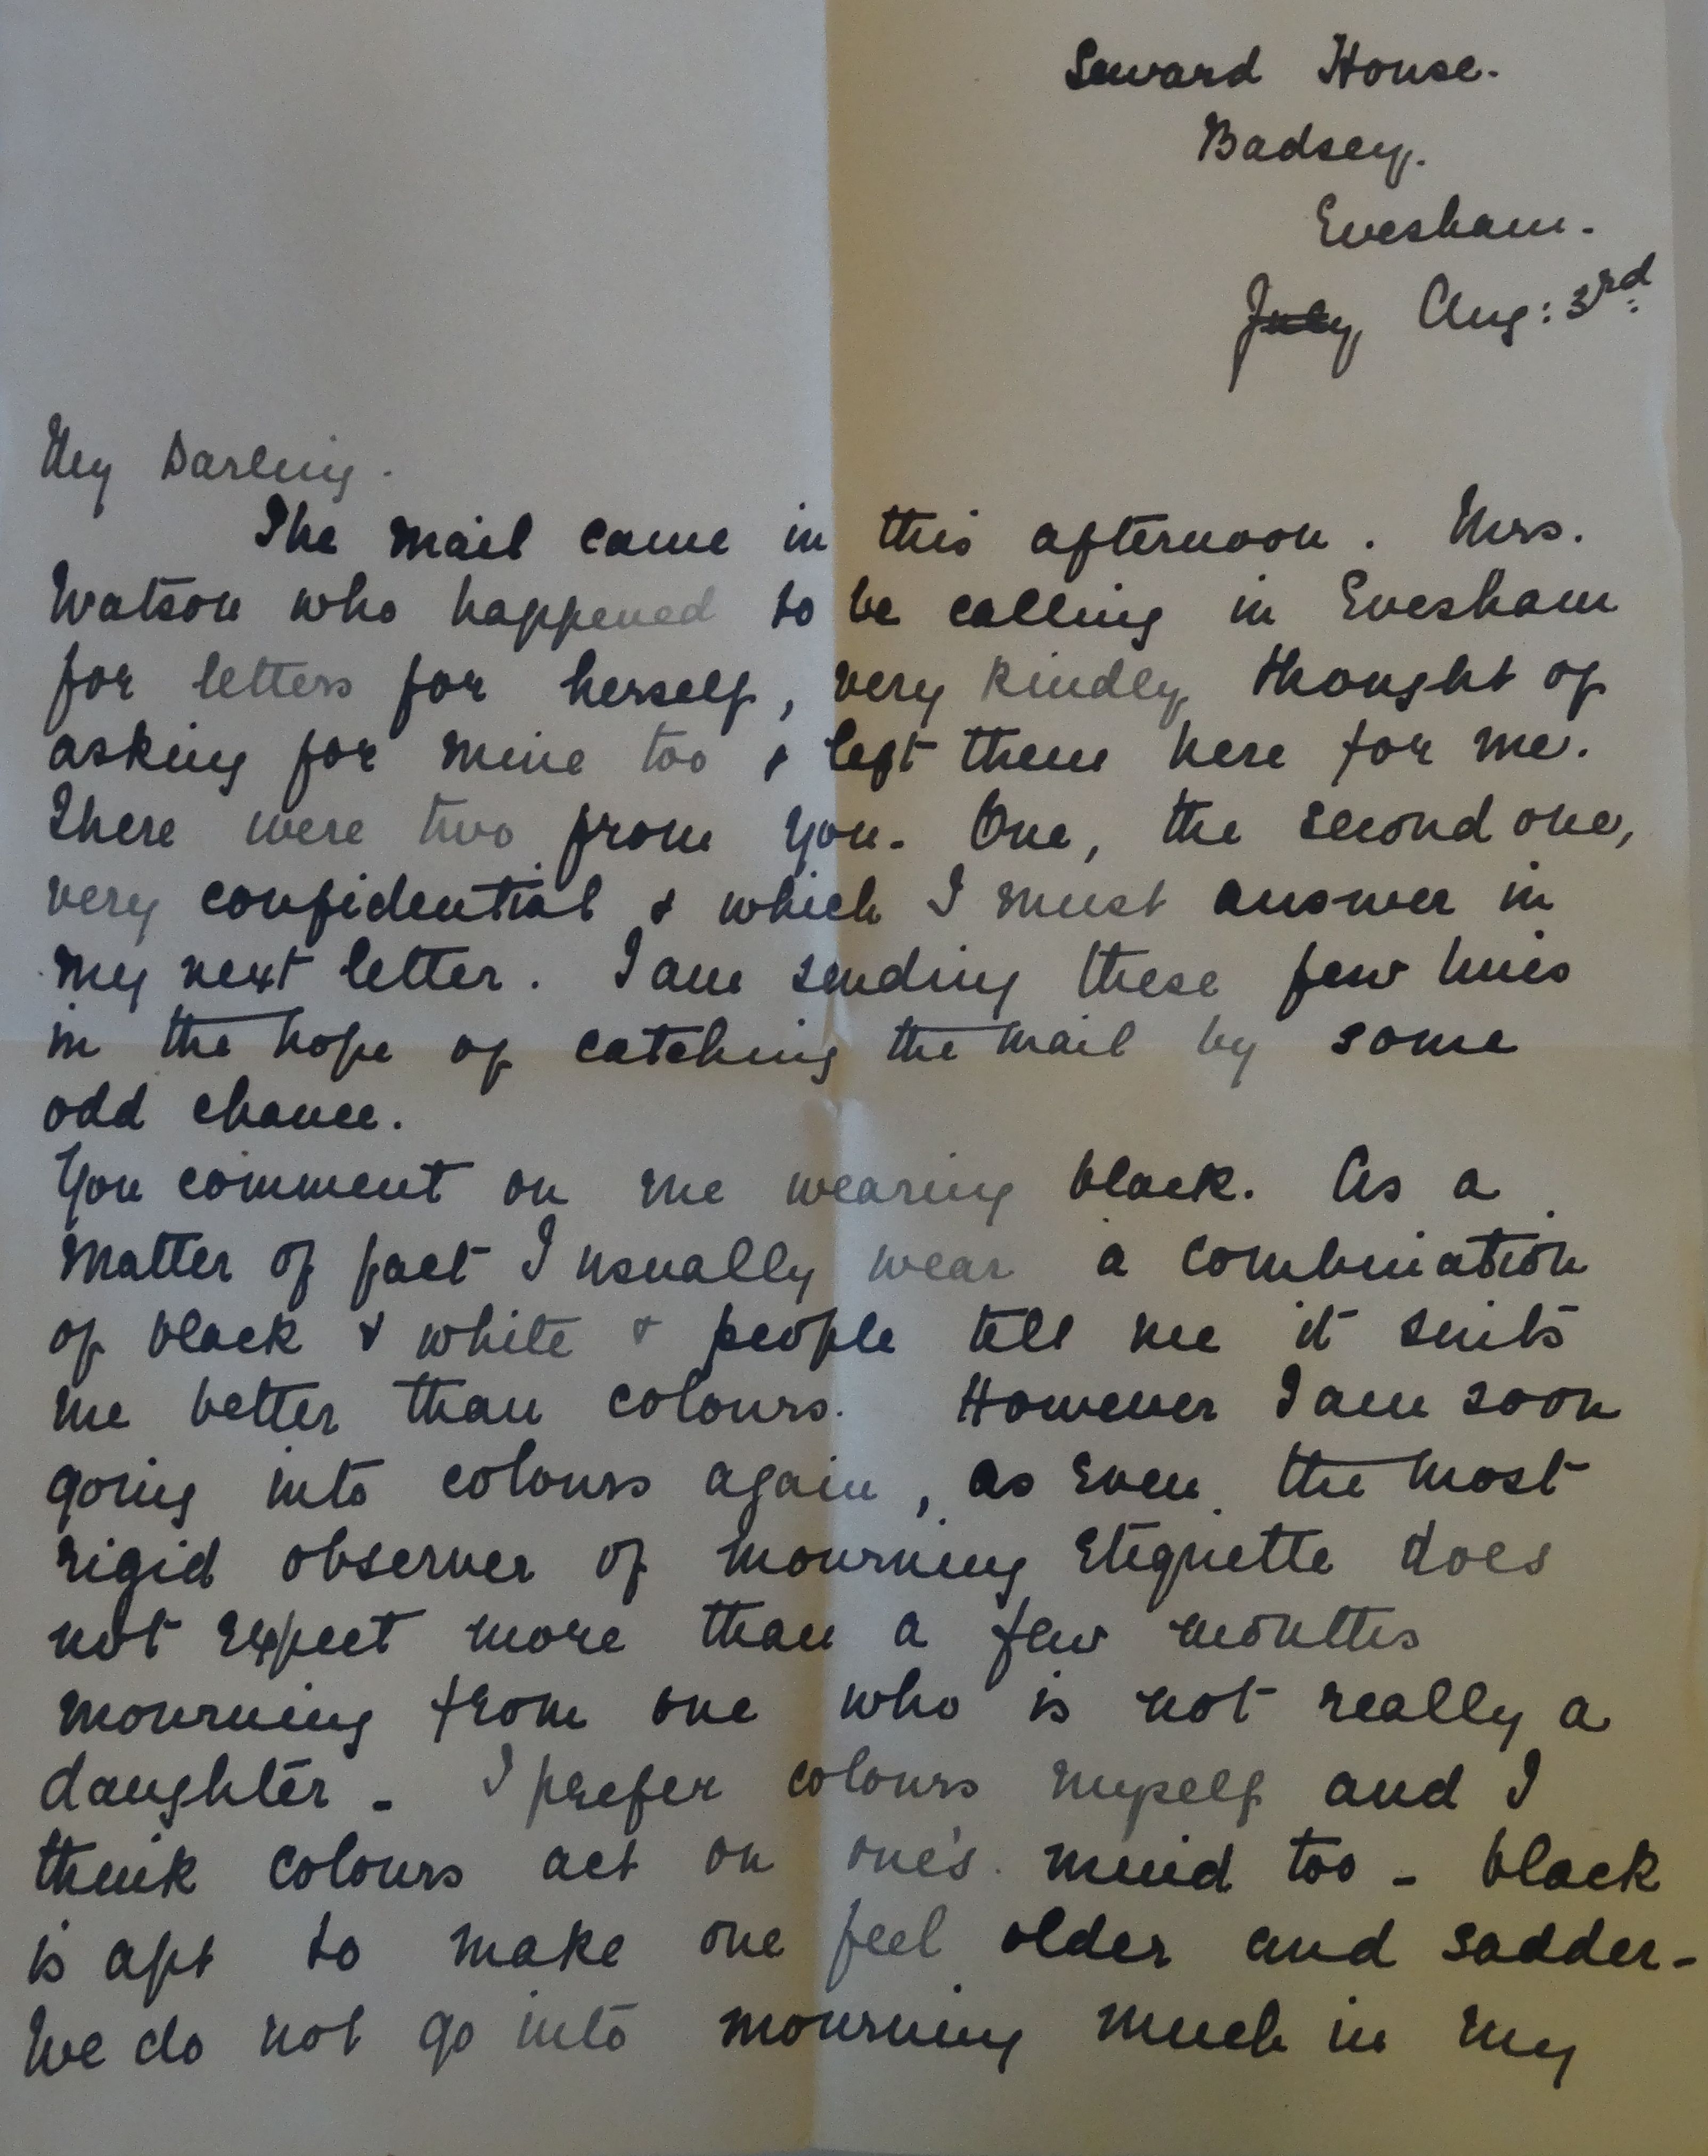 Seward House.
Badsey.
Evesham.
July Aug: 3rd
My Darling.
The mail came in this afternoon. Mrs.
Watson who happened to be calling in Evesham
for letters for herself, very kindly thought of
asking for mine too & left them here for me.
There were two from you. One, the second one,
very confidential & which I must answer in
my next letter. I am sending these few lines
in the hope of catching the mail by some
odd chance.
You comment on me wearing black. As a
matter of fact I usually wear a combination
of black & white & people tell me it suits
me better than colours. However I am soon
going into colours again, as even the most
rigid observer of mourning etiquette does
not expect more than a few months
mourning from one who is not really a
daughter - I prefer colours myself and I
think colours act on one's mind too - black
is apt to make one feel older and sadder -
We do not go into mourning much in my